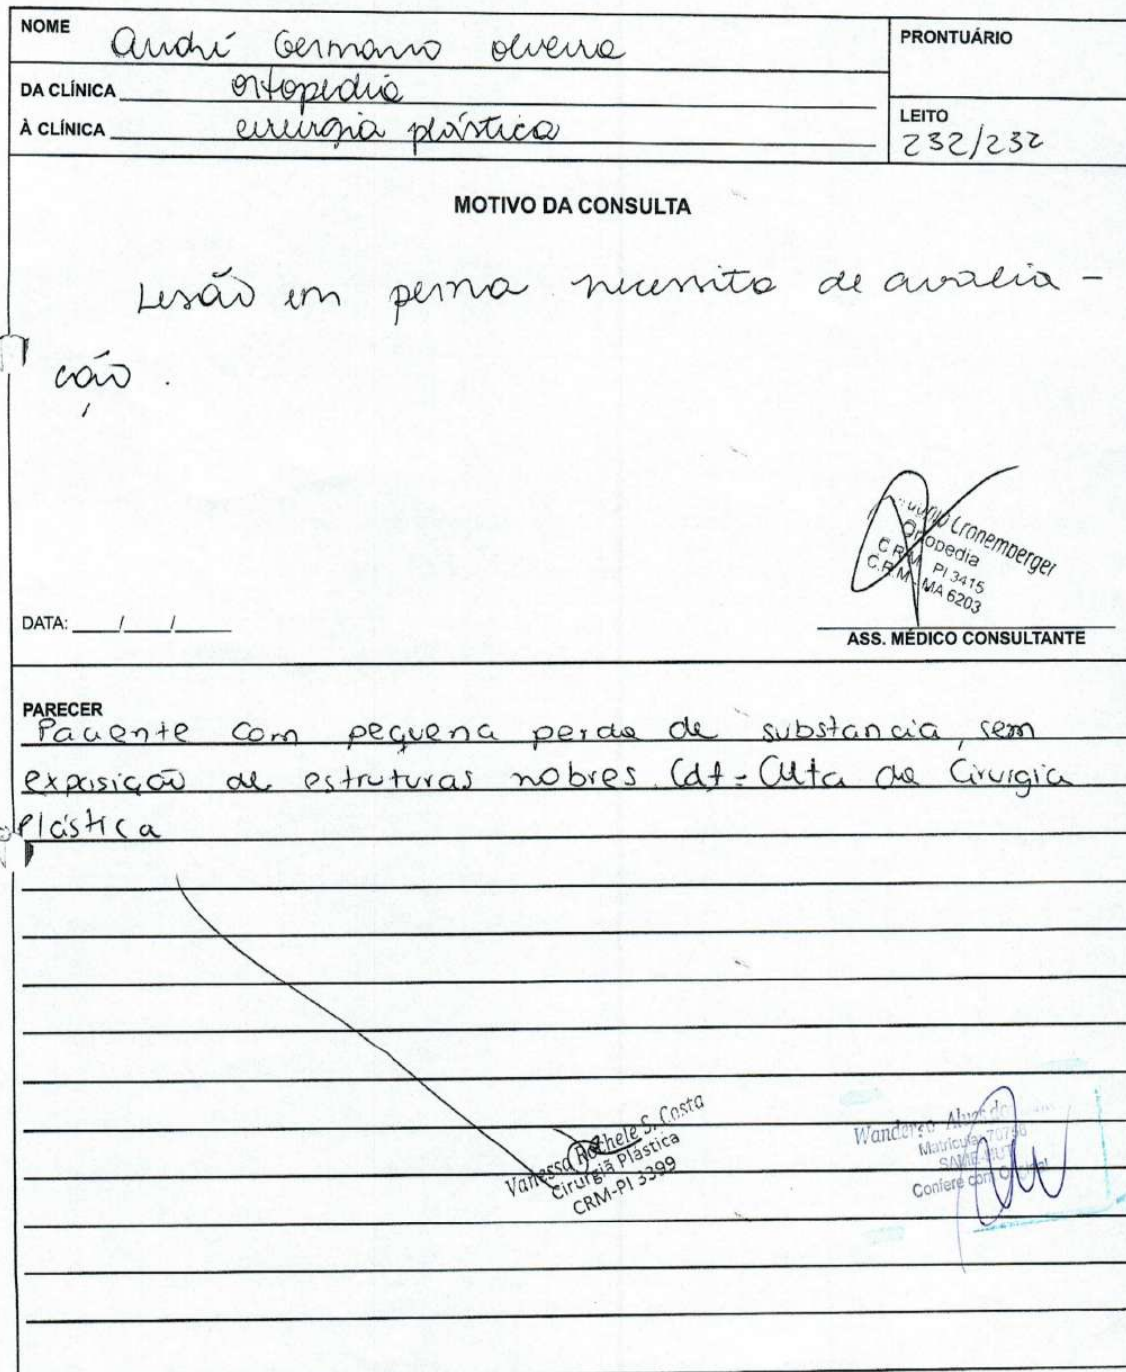 NOME André Germano Oliveira
PRONTUÁRIO
DA CLÍNICA ortopedia
À CLÍNICA cirurgia plástica
LEITO
232/232
MOTIVO DA CONSULTA
Lesão em perna necessita de avalia-
ção.
Cronemberger
Ortopedia
C.R.M. PI 3415
C.R.M. - MA 6203
DATA: ___/___/___
ASS. MÉDICO CONSULTANTE
PARECER
Paciente com pequena perda de substancia, sem
exposição de estruturas nobres. Cdt = Alta da Cirurgia
Plástica
Vanessa Rochele S. Costa
Cirurgiã Plástica
CRM-PI 3399
Alves de
Matrícula
Confere com Original